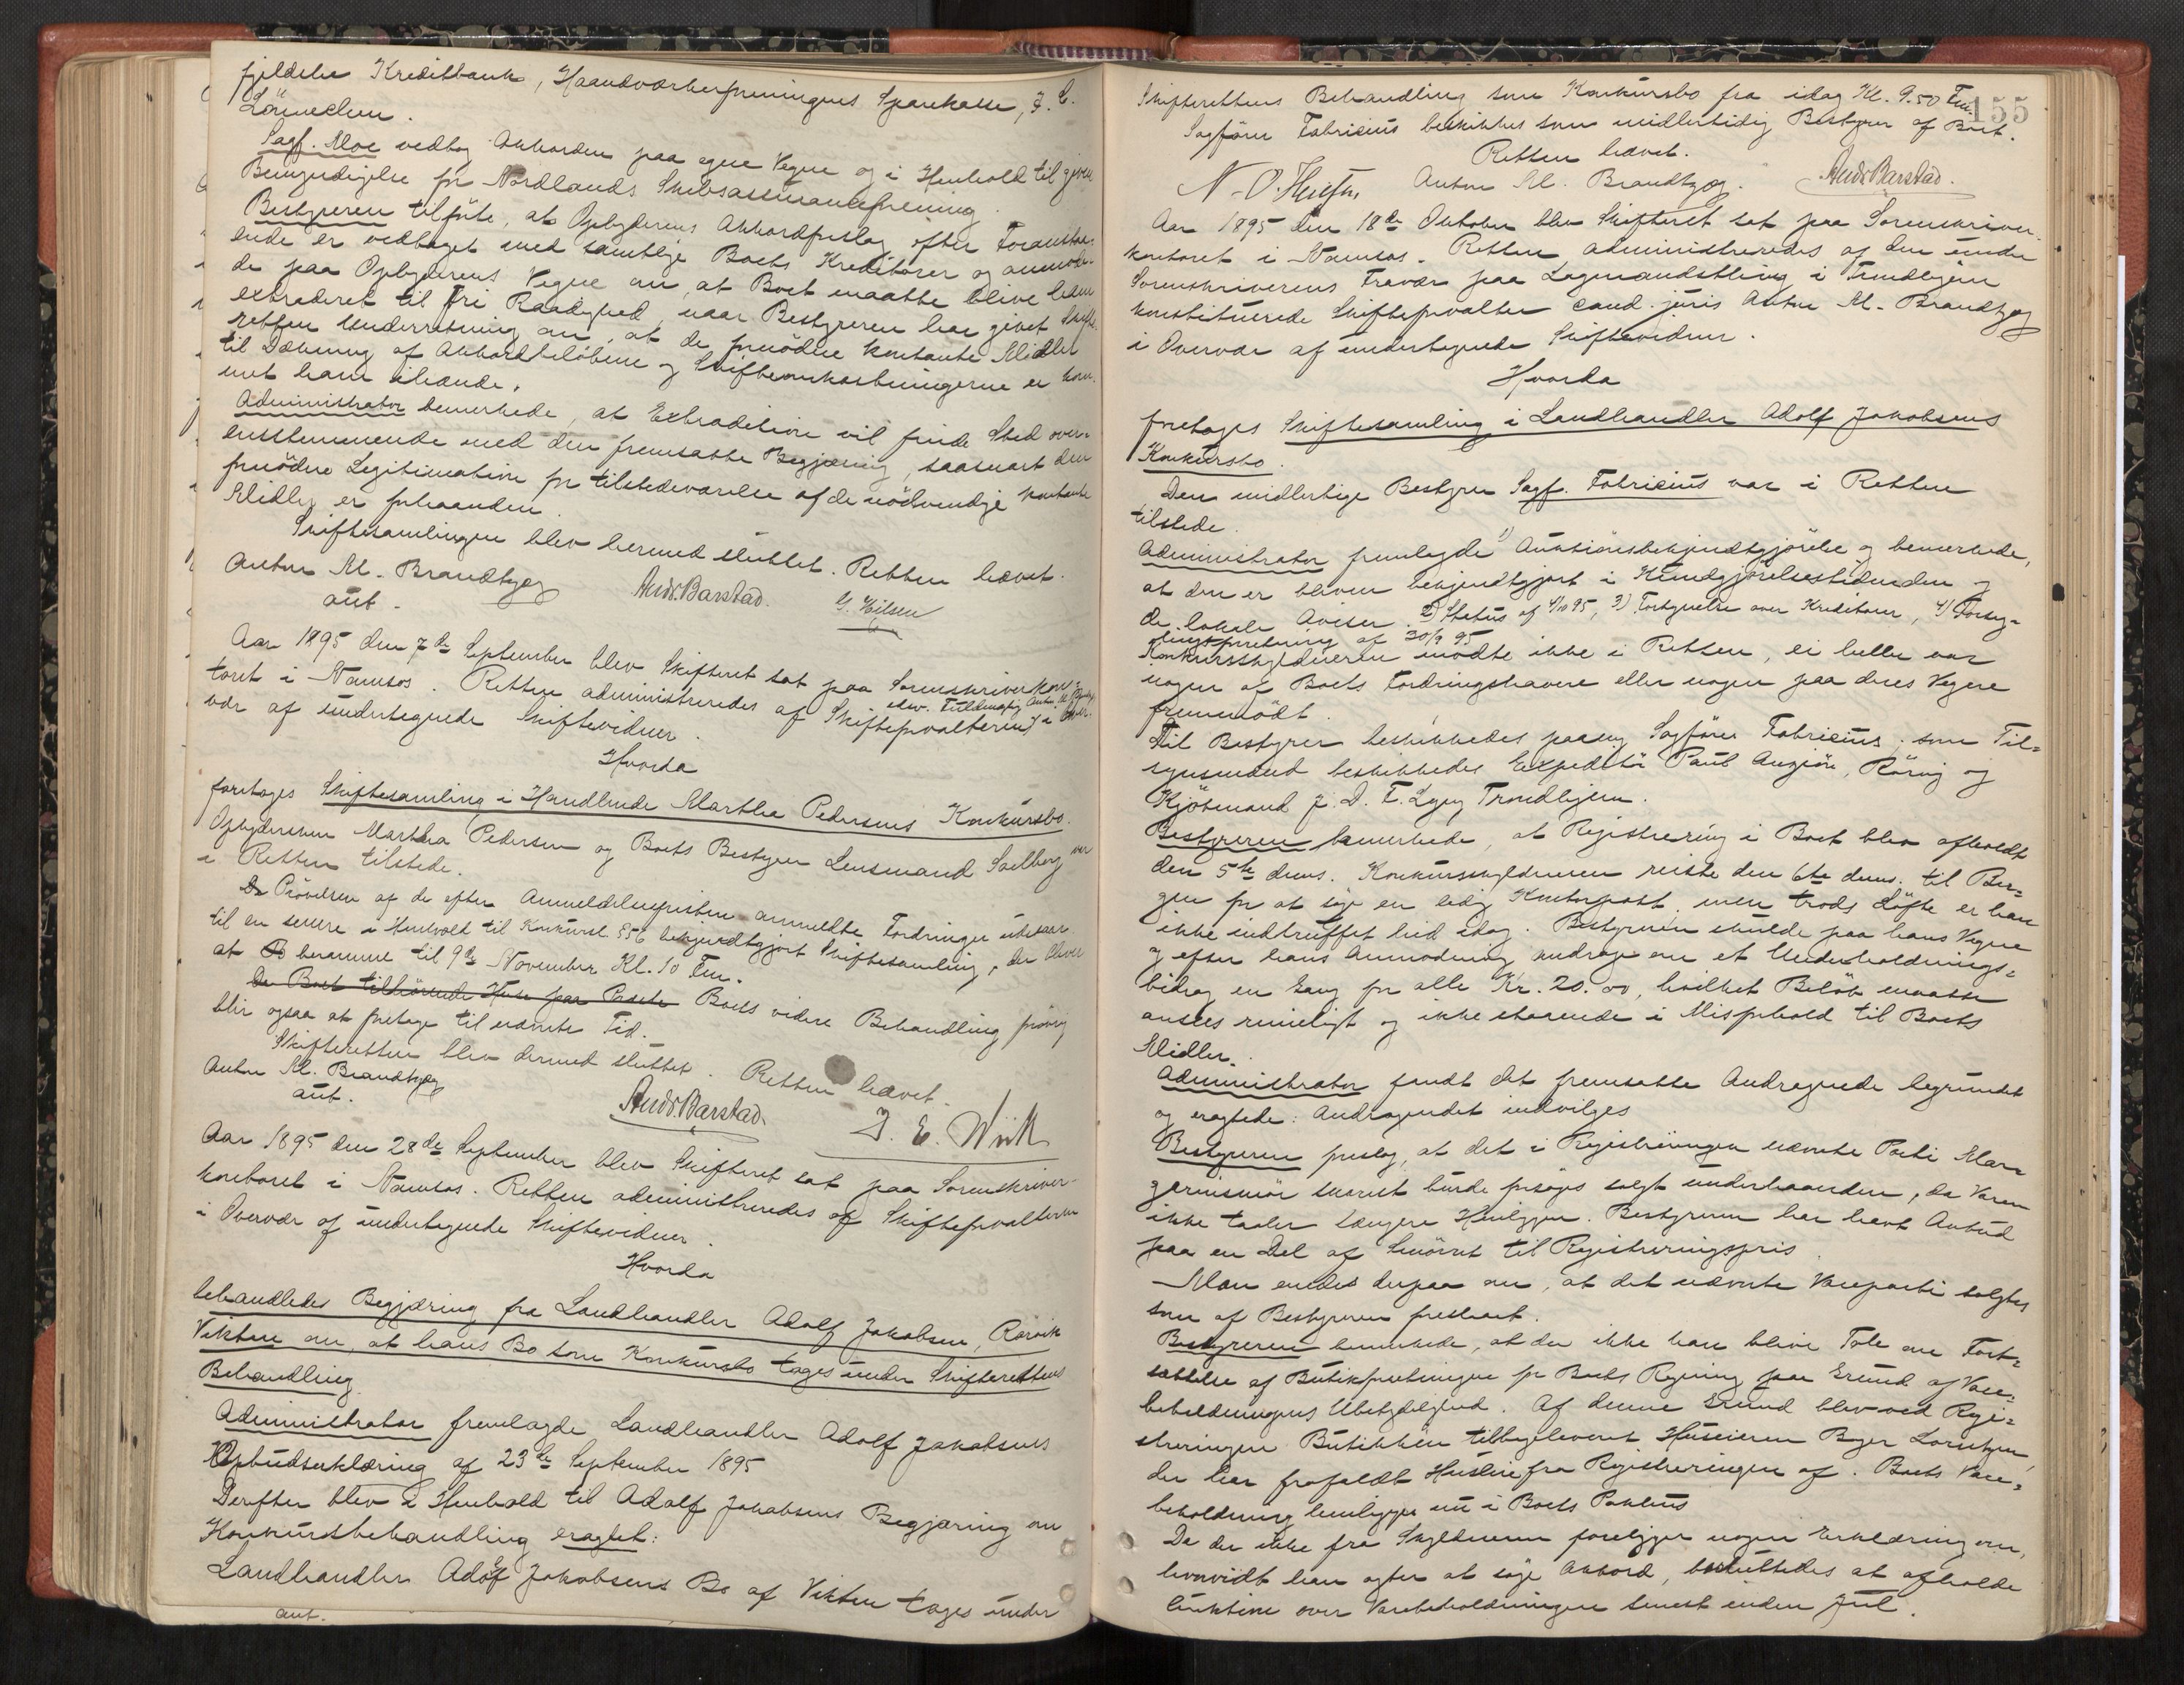 fjeldske Kreditbank, Haandværkerforeningens Sparekasse, J. C.
Lönvechen.
Sagf. Moe vedtog Akkorden paa egne Vegne og i Henhold til given
Bemyndigelse for Nordlands Skibsassuranceforening.
Bestyreren tilføiede, at Opbyderens Akkordforslag efter Foranstaa-
ende er vedtaget med samtlige Boets Kreditorer og anmode-
de paa Opbyderens Vegne om, at Boet maatte blive ham
extraderet til fri Raadighed, naar Bestyreren har givet Skifte-
retten Underretning om, at de fornödne kontante Midler
til Dækning af Akkordbelöbene og Skifteomkostningerne er kom-
met ham ihænde.
Administrator bemerkede, at Extraditionen vil finde Sted over-
ensstemmende med den fremsatte Begjæring, saasnart den
fornödne Legitimation for tilstedeværelse af de nödvendige kontante
Midler er forhaanden.
Skiftesamlingen blev hermed sluttet. Retten hævet.
Anton M. Brandtzæg Andr. Barstad. G. Hilsen
aut.
Aar 1895 den 7de September blev Skifteret sat paa Sorenskriverkon-
toret i Namsos. Retten administreredes af Skifteforvalteren i Over-
edsv. Fuldmægtig Anton M. Brandtzæg
vær af undertegnede Skiftevidner.
Hvorda
foretoges Skiftesamling i Handlende Martha Pedersens Konkursbo.
Opbydersken Martha Pedersen og Boets Bestyrer Lensmand Solberg var
i Retten tilstede.
Prövelsen af de efter Anmeldelsesfristen anmeldte Fordringer udstaar
til en senere i Henhold til Konkursl. §56 bekjendtgjort Skiftesamling, der bliver
at beramme til 9de November Kl. 10 Fm.
Da Boet tilhörende Huse paa Boets videre Behandling forövrig
blir ogsaa at foretage til nævnte Tid.
Skifteretten blev dermed sluttet. Retten hævet.
Anton M. Brandtzæg
aut. Andr. Barstad. J. E. Wiik
Aar 1895 den 28de September blev Skifteret sat paa Sorenskriver-
kontoret i Namsos. Retten administreredes af Skifteforvalteren
i Overvær af undertegnede Skiftevidner.
Hvorda
behandledes Begjæring fra Landhandler Adolf Jakobsen, Rörvik
Vikten om, at hans Bo som Konkursbo tages under Skifterettens
Behandling.
Administrator fremlagde Landhandler Adolf Jakobsens
Opbudserklæring af 23de September 1895
Derefter blev i Henhold til Adolf Jakobsens Begjæring om
Konkursbehandling eragtet:
Landhandler Adolf Jakobsens Bo af Vikten tages under
aut.
155
Skifterettens Behandling som Konkursbo fra idag Kl. 9.50 Fm.
Sagförer Fabricius beskikkes som midlertidig Bestyrer af Boet.
Retten hævet.
Anton M. Brandtzæg. Andr. Barstad.
Aar 1895 den 18de Oktober blev Skifteret sat paa Sorenskriver-
kontoret i Namsos. Retten administreredes af den under
Sorenskriverens Fravær paa Lagmandsthing i Trondhjem
konstituerede Skifteforvalter cand. juris Anton M. Brandtzæg
i Overvær af undertegnede Skiftevidner.
Hvorda
foretoges Skiftesamling i Landhandler Adolf Jakobsens
Konkursbo.
Den midlertige Bestyrer Sagf. Fabricius var i Retten
tilstede.
Administrator fremlagde 1) Auktionsbekjendtgjörelse og bemerkede,
at den er bleven bekjendtgjort i Kundgjörelsestidenden og
de lokale Aviser. 2) Status af 4/10 95, 3) Fortegnelse over Kreditorer, 4)
af 30/9 95
Konkursskyldneren mödte ikke i Retten, ei heller var
nogen af Boets Fordringshavere eller nogen paa deres Vegne
fremmödt.
Til Bestyrer beskikkedes paany Sagförer Fabricius; som Til-
synsmænd beskikkedes Expeditör Paul Anzjön, Rörvig og
Kjöbmand J. D. F. Trondhjem.
Bestyreren bemerkede, at Registrering i Boet blev afholdt
den 5te dens. Konkursskyldneren reiste den 6te dens. til Ber-
gen for at söge en ledig Kontorpost, men trods Löfte er han
ikke indtruffet hid idag. Bestyreren skulde paa hans Vegne
og efter hans Anmodning andrage om et Underholdnings-
bidrag en Gang for alle Kr. 20.00, hvilket Belöb maatte
ansees rimeligt og ikke staaende i Misforhold til Boets
Midler.
Administrator fandt det fremsatte Andragende begrundet
og eragtede: Andragendet indvilges
Bestyreren foreslog, at det i Registreringen nævnte Parti Mar-
garinsmör snarest burde forsöges solgt underhaanden, da Varen
ikke taaler længere Henliggen. Bestyreren har havt Anbud
paa en Del af Smörret til Registreringspris.
Man enedes derpaa om, at det nævnte Vareparti solgtes
som af Bestyreren foreslaaet.
Bestyreren bemerkede, at der ikke kan blive Tale om Fort-
sættelse af Butikforretningen for Boets Regning paa Grund af Vare-
beholdningens Ubetydelighed. Af denne Grund blev ved Regi-
streringen Butikken tilbageleveret Huseieren Roger Lorentzen,
der har frafaldt Husleie fra Registreringen af. Boets Vare-
beholdning henligger nu i Boets Pakhus
Da der ikke fra Skyldneren foreligger nogen Erklæring om,
hvorvidt han agter at söge Akkord, besluttedes at afholde
Auktion over Varebeholdningen senest inden Jul.